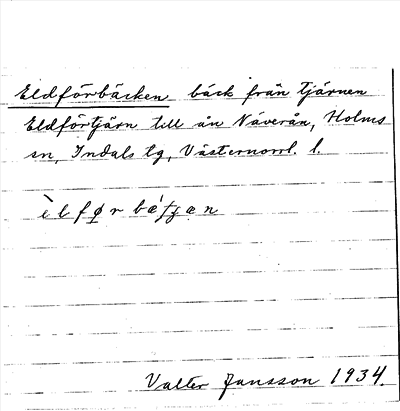 Eldförbäcken bäck från tjärnen
Eldförtjärn till ån Näverån, Holms
sn, Indals tg, Västernorrl. l.
èlfør bǽʃʃən
Valter Jansson 1934.